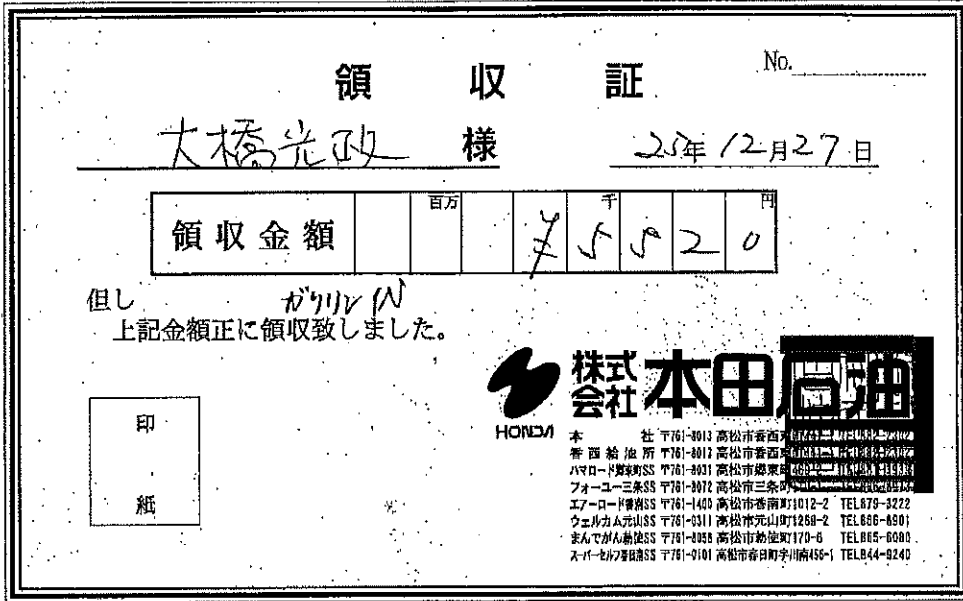 領収証
No.
大橋光政 様
25年12月27日
領収金額 百万 千 円
¥5520
但し ガソリン代
上記金額正に領収致しました。
印
紙
HONDA
株式会社 本田石油
本社 〒761-8013 高松市香西
香西給油所 〒761-8012 高松市香西
ハマロード郷東町SS 〒761-8031 高松市郷東町
フォーユー三条SS 〒761-8072 高松市三条町
エアーロード香南SS 〒761-1400 高松市香南町1012-2 TEL879-3222
ウェルカム元山SS 〒761-0311 高松市元山町1258-2 TEL866-8901
まんでがん勅使SS 〒761-8058 高松市勅使町170-6 TEL865-6090
スーパーセルフ春日南SS 〒761-0101 高松市春日町字川南456-1 TEL844-9240